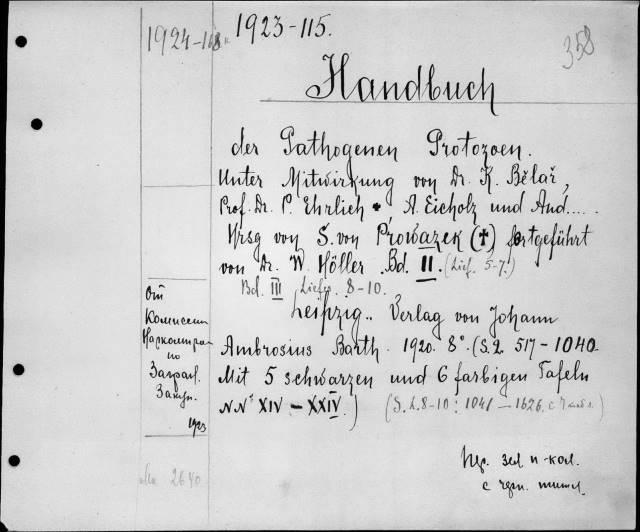 1924-168
1923-115.
358
Handbuch
der Pathogenen Protozoen.
Unter Mitwirkung von Dr. K. Bělař,
Prof. Dr. P. Ehrlich, A. Eicholz und And....
Hrsg von S. von Prowazek (†) fortgeführt
von Dr. W. Nöller. Bd. II. (Lief. 5-7.)
Bd. III Liefer. 8-10.
Leipzig.. Verlag von Johann
Ambrosius Barth. 1920. 8°. (S. 517-1040
Mit 5 schwarzen und 6 farbigen Tafeln
NN° XIV-XXIV.) (S. L. 8-10: 1041-1626. с табл.)
От
Комиссии
Наркомпроса
по
Заграл.
Закуп.
1923
2640
Пер. зел и кол.
с черн. тисн.